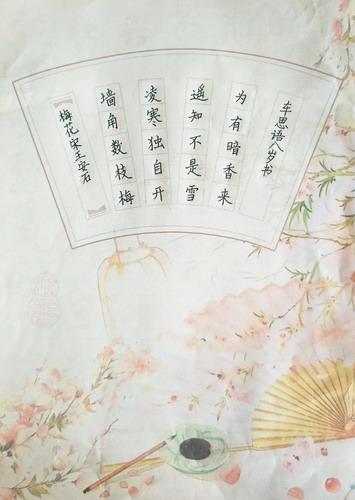 梅花 宋王安石
墙角数枝梅
凌寒独自开
遥知不是雪
为有暗香来
车思语八岁书